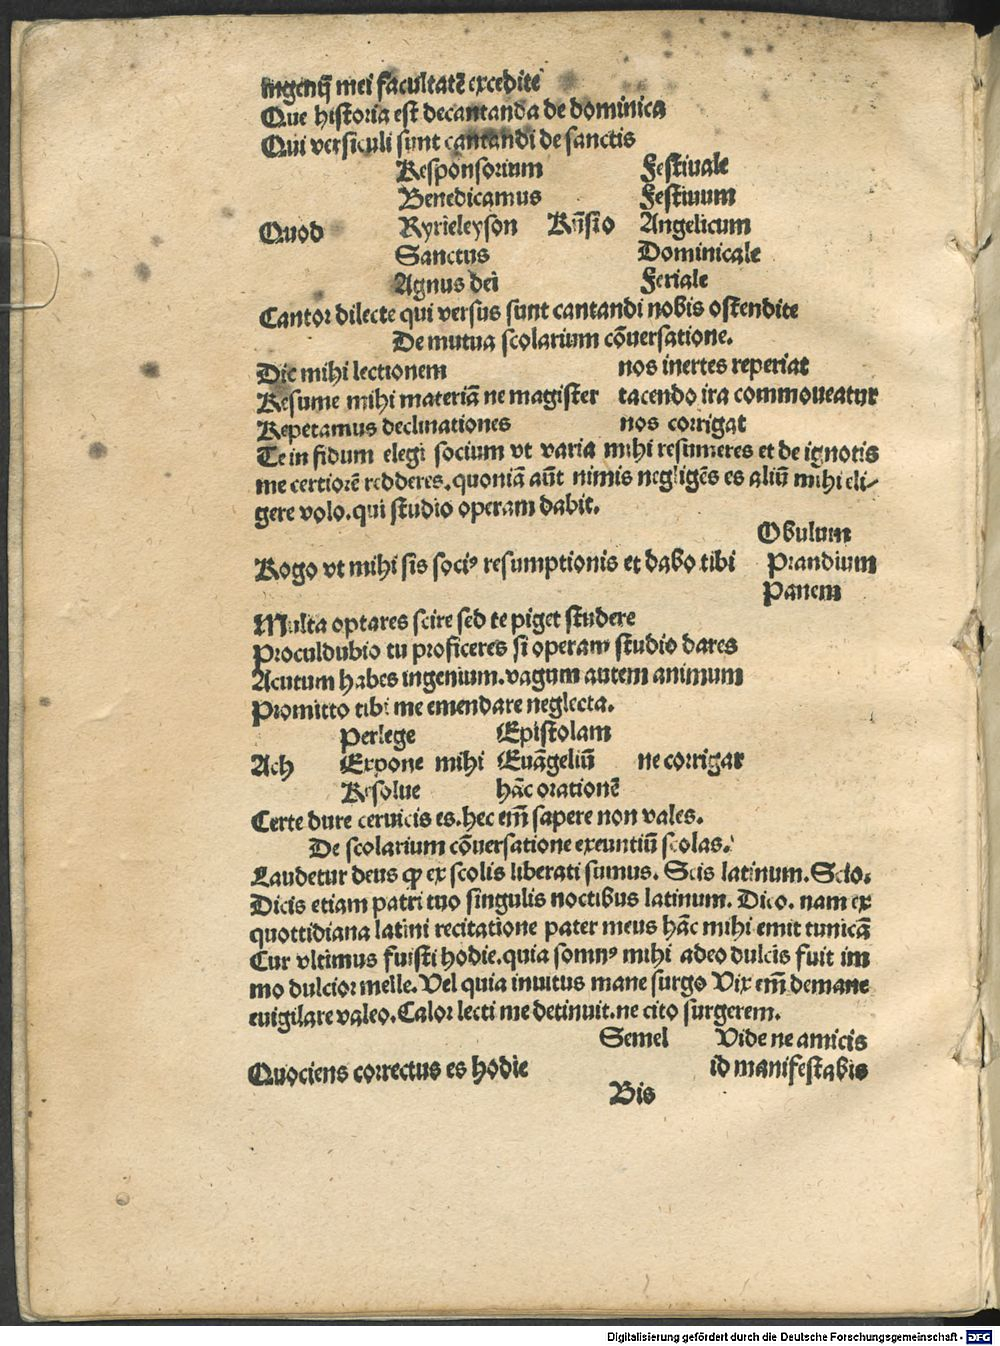 ingenijq̄ mei facultatē excedite
Que historia est decantanda de dominica
Qui versiculi sunt cantandi de sanctis
Responsorium Festiuale
Benedicamus Festiuum
Quod Kyrieleyson Angelicum
Sanctus Dominicale
Agnus dei Feriale
Cantor dilecte qui versus sunt cantandi nobis ostendite
De mutua scolarium cōuersatione.
Dic mihi lectionem nos inertes reperiat
Resume mihi materiā ne magister tacendo ira commoueatur
Repetamus declinationes nos corrigat
Te in fidum elegi socium vt varia mihi resumeres et de ignotis
me certiorē redderes. quoniā aūt nimis negligēs es aliū mihi eli-
gere volo. qui studio operam dabit.
Obulum
Rogo vt mihi sis sociꝰ resumptionis et dabo tibi Prandium
Panem
Multa optares scire sed te piget studere
Proculdubio tu proficeres si operam studio dares
Acutum habes ingenium. vagum autem animum
Promitto tibi me emendare neglecta.
Perlege Epistolam
Ach Expone mihi Euāgeliū ne corrigar
Resolue hāc orationē
Certe dure ceruicis es. hec em̄ sapere non vales.
De scolarium cōuersatione exeuntiū scolas.
Laudetur deus ꝙ ex scolis liberati sumus. Scis latinum. Scio.
Dicis etiam patri tuo singulis noctibus latinum. Dico. nam ex
quottidiana latini recitatione pater meus hāc mihi emit tunicā
Cur vltimus fuisti hodie. quia somnꝰ mihi adeo dulcis fuit im
mo dulcior melle. Vel quia inuitus mane surgo Vix em̄ de mane
euigilare valeo. Calor lecti me detinuit. ne cito surgerem.
Semel Vide ne amicis
Quociens correctus es hodie id manifestabis
Bis
Digitalisierung gefördert durch die Deutsche Forschungsgemeinschaft - DFG